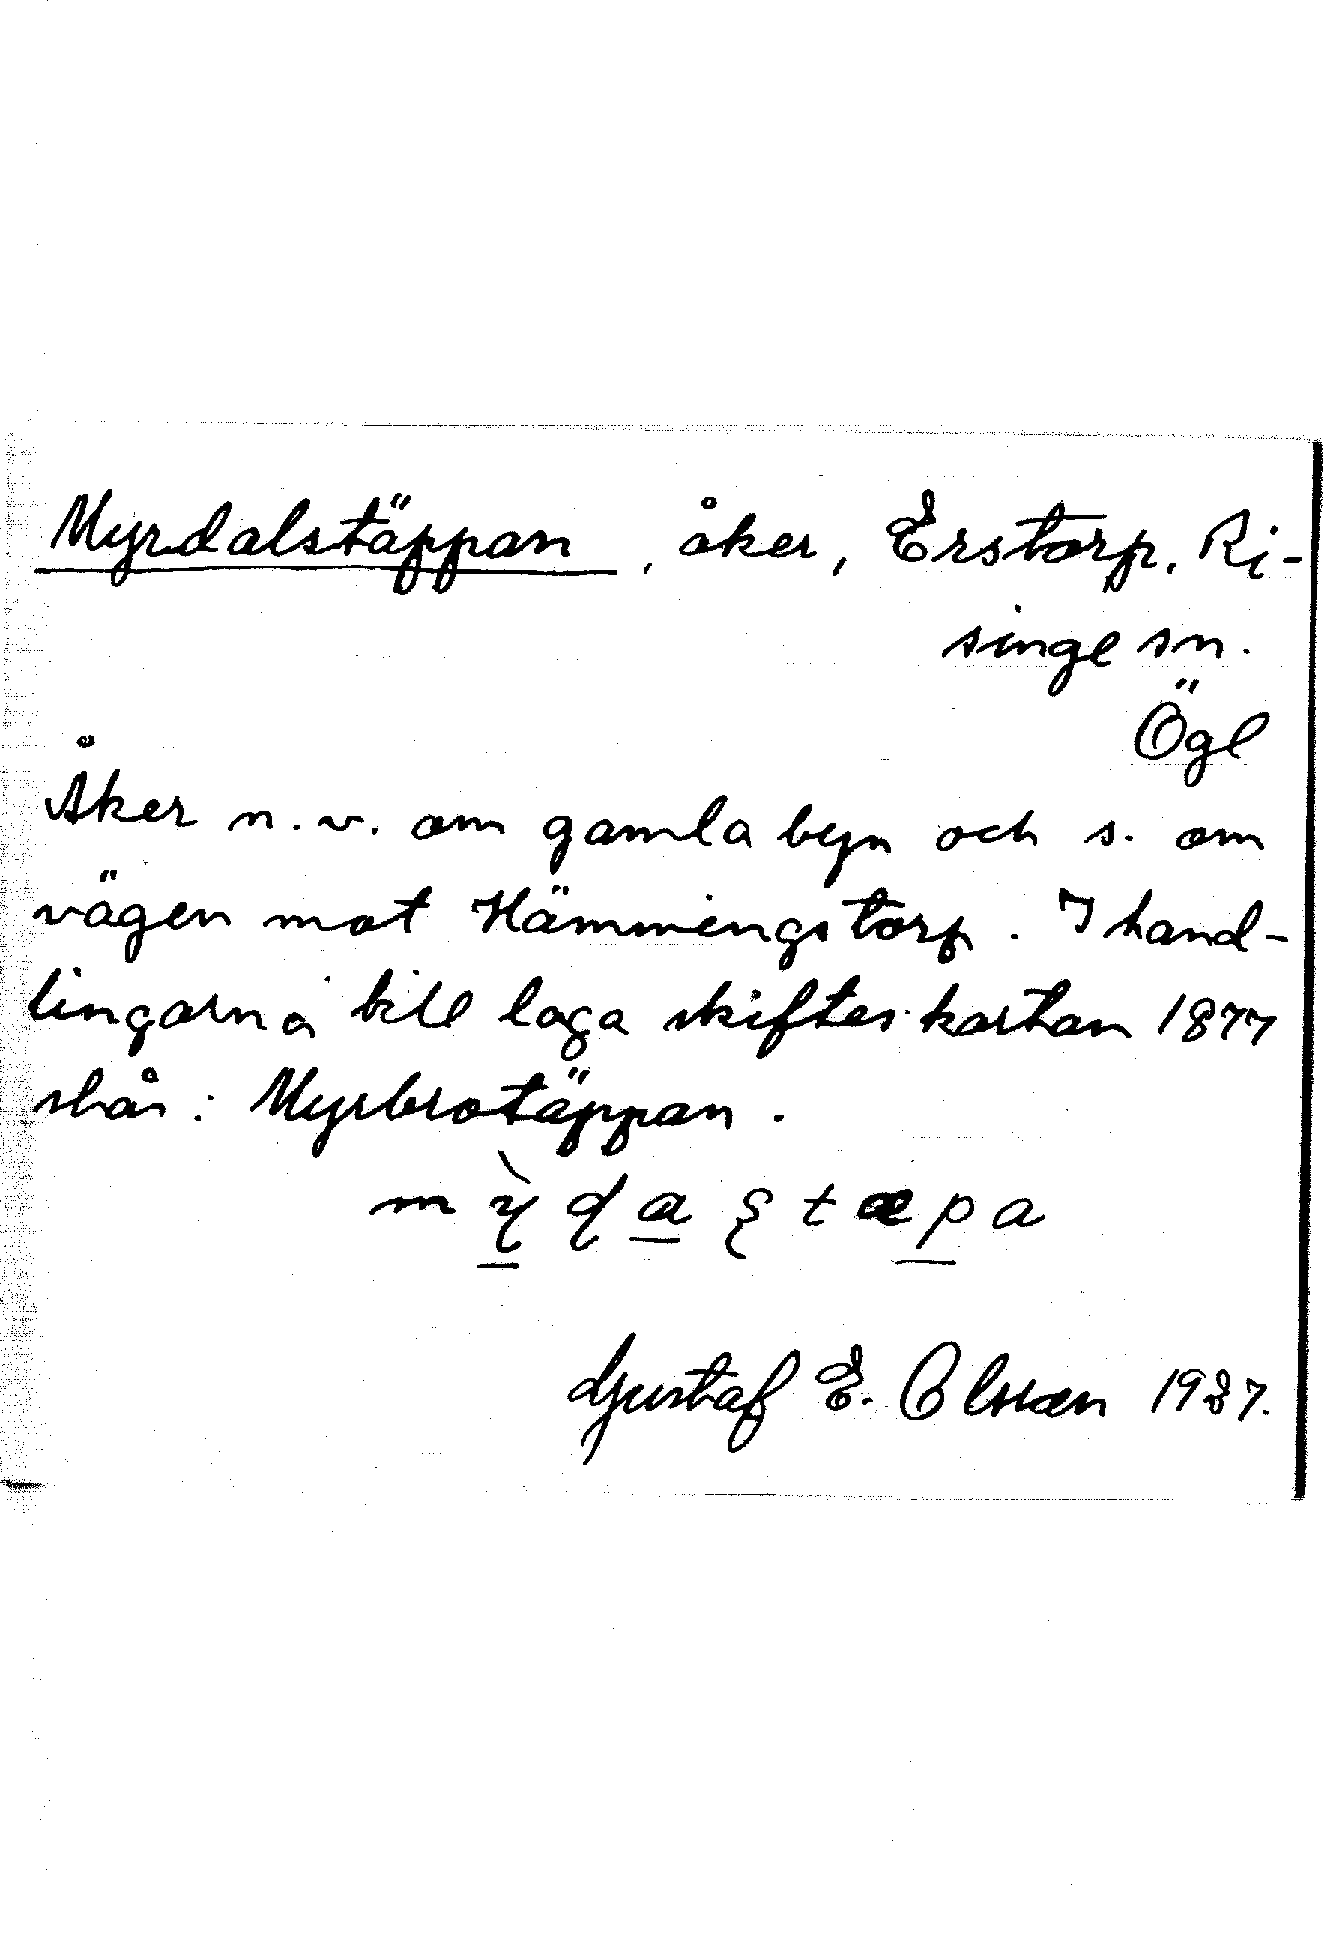 Myrdalstäppan, åker, Erstorp, Ri-
singe sn.
Ögl
Åker n.v. om gamla byn och s. om
vägen mot Hämmingstorp. I hand-
lingarna till laga skifteskartan 1877
står: Myrbrotäppan.
Gustaf E. Olsson 1937.